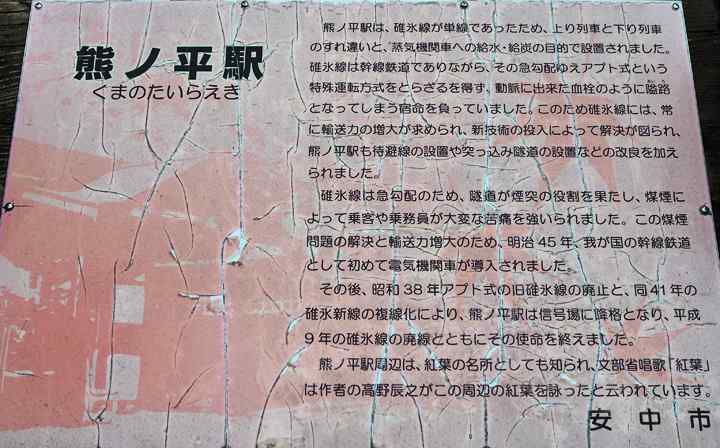 熊ノ平駅
くまのたいらえき
熊ノ平駅は、碓氷線が単線であったため、上り列車と下り列車
のすれ違いと、蒸気機関車への給水・給炭の目的で設置されました。
碓氷線は幹線鉄道でありながら、その急勾配ゆえアプト式という
特殊運転方式をとらざるを得ず、動脈に出来た血栓のように隘路
あいろ
となってしまう宿命を負っていました。このため碓氷線には、常
に輸送力の増大が求められ、新技術の投入によって解決が図られ、
熊ノ平駅も待避線の設置や突っ込み隧道の設置などの改良を加え
られました。
碓氷線は急勾配のため、隧道が煙突の役割を果たし、煤煙に
よって乗客や乗務員が大変な苦痛を強いられました。この煤煙
問題の解決と輸送力増大のため、明治45年、我が国の幹線鉄道
として初めて電気機関車が導入されました。
その後、昭和38年アプト式の旧碓氷線の廃止と、同41年の
碓氷新線の複線化により、熊ノ平駅は信号場に降格となり、平成
9年の碓氷線の廃線とともにその使命を終えました。
熊ノ平駅周辺は、紅葉の名所としても知られ、文部省唱歌「紅葉」
は作者の高野辰之がこの周辺の紅葉を詠ったと云われています。
安中市